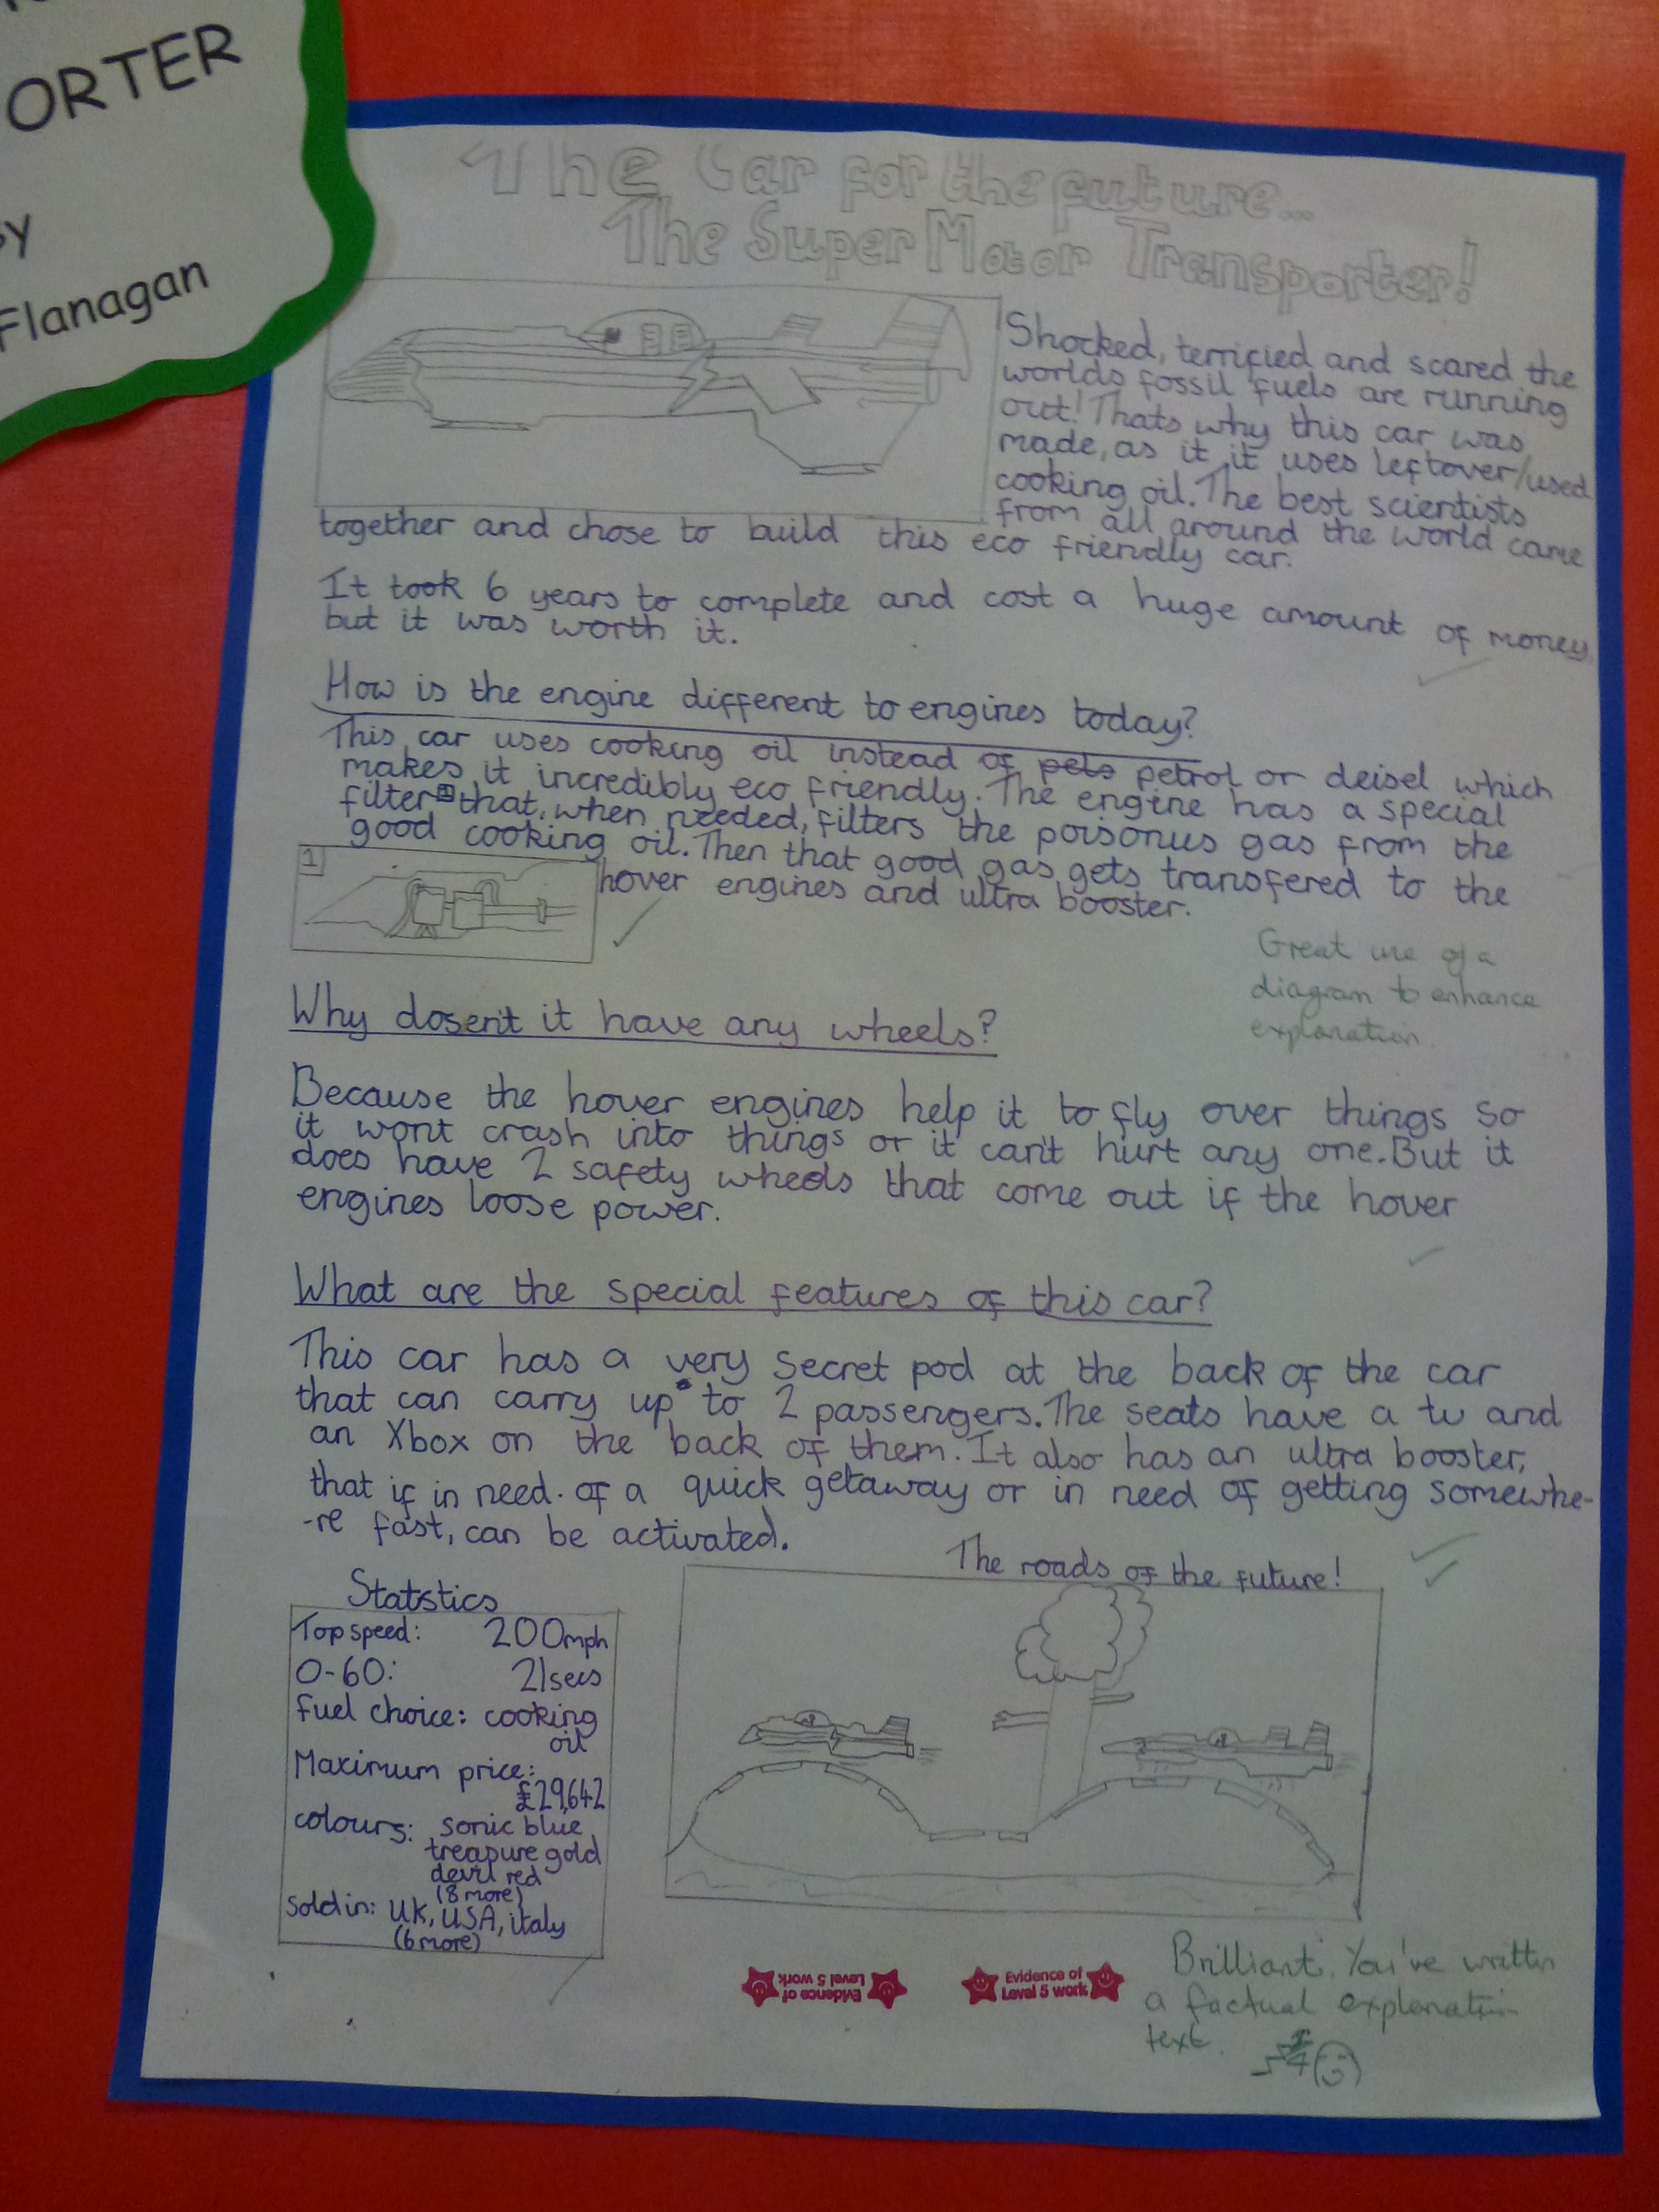 ORTER
by
Flanagan
The Car for the future...
The Super Motor Transporter!
Shocked, terrified and scared the
worlds fossil fuels are running
out! Thats why this car was
made, as it it uses leftover/used
cooking oil. The best scientists
from all around the world came
together and chose to build this eco friendly car.
It took 6 years to complete and cost a huge amount of money
but it was worth it.
How is the engine different to engines today?
This car uses cooking oil instead of pets petrol or deisel which
makes it incredibly eco friendly. The engine has a special
filter 1 that, when needed, filters the poisonus gas from the
good cooking oil. Then that good gas gets transfered to the
1
hover engines and ultra booster.
Great use of a
diagram to enhance
explanation.
Why dosen't it have any wheels?
Because the hover engines help it to fly over things so
it wont crash into things or it can't hurt any one. But it
does have 2 safety wheels that come out if the hover
engines loose power.
What are the special features of this car?
This car has a very secret pod at the back of the car
that can carry up to 2 passengers. The seats have a tv and
an Xbox on the back of them. It also has an ultra booster,
that if in need. of a quick getaway or in need of getting somewhe-
-re fast, can be activated.
The roads of the future!
Statstics
Top speed: 200mph
0-60: 21secs
fuel choice: cooking
oil
Maximum price:
£29,642
colours: sonic blue
treasure gold
devil red
(8 more)
sold in: UK, USA, italy
(6 more)
Evidence of
Level 5 work
Evidence of
Level 5 work
Brilliant. You've written
a factual explanation
text.